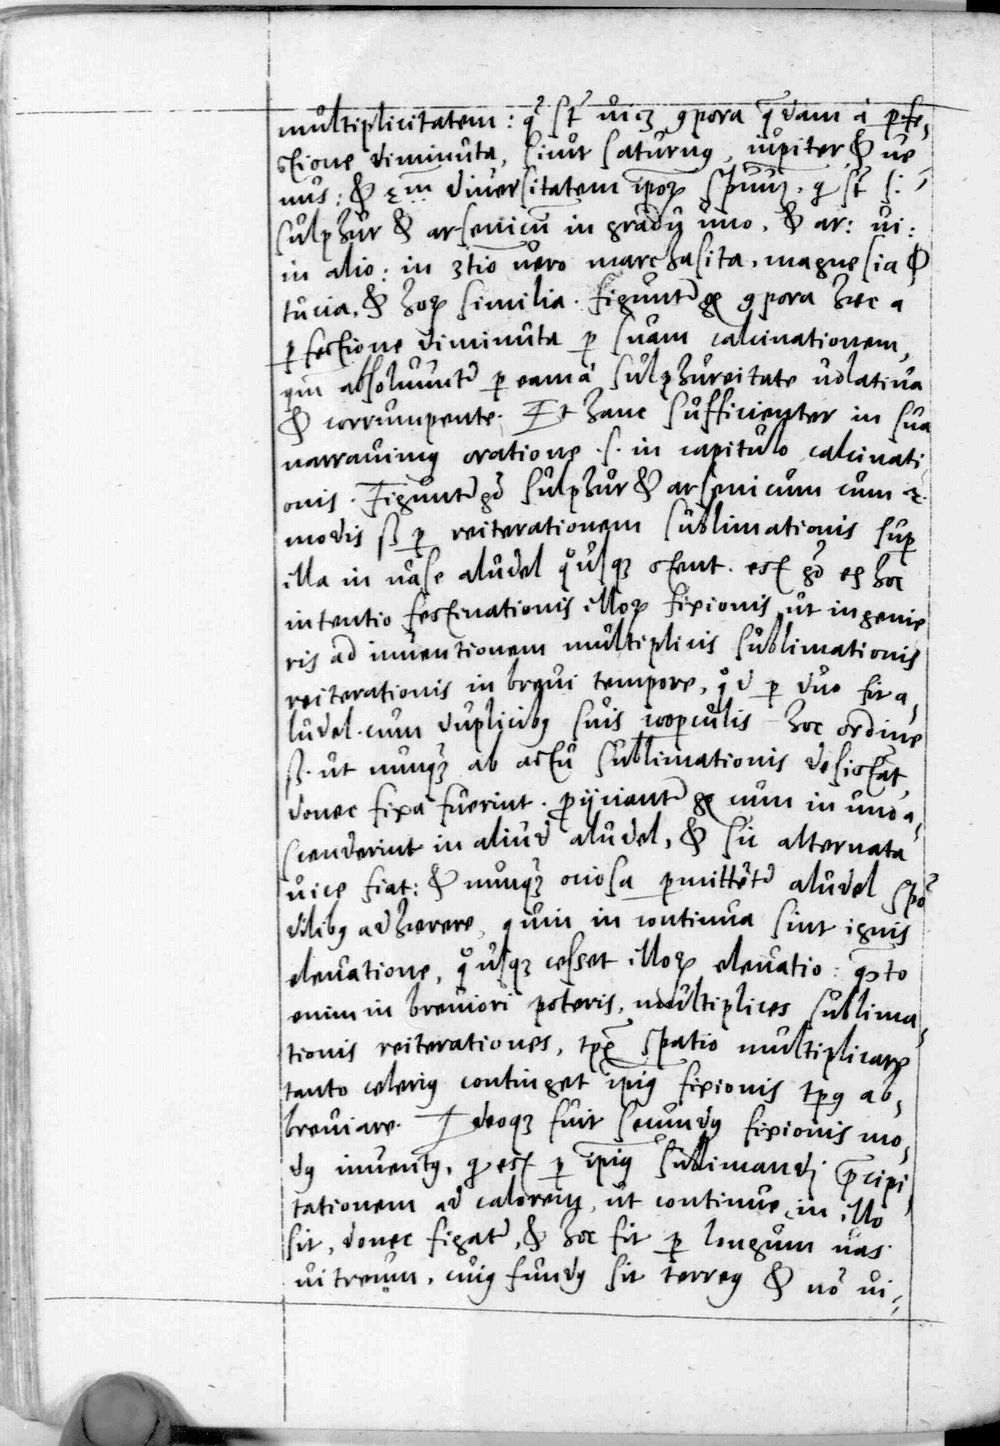 multiplicitatem: qͣ st̃ uicꝫ ꝯpora q̃dam à ꝑfe,
ctione diminuta, sicut saturnꝰ, iupiter & ue
nus: & diuersitatem ip̃oꝝ sp̃uũ, q̇ st̃ s:
sulphur & arsenicũ in gradu uno, & ar: ui:
in alio: in 3tio uero marchasita, magnesia &
tucia, & hoꝝ similia. figuntʳ ꝯpora hæc a
ꝑfectione diminuta ꝑ suam calcinationem,
absoluuntʳ ꝑ eam à sulphureitate uolatiua
& corrumpente. Et hanc sufficienter in sua
narrauimꝰ oratione .s. in capitulo calcinati
onis. Figuntʳ sulphur & arsenicum cum
modis ꝑ reiterationem sublimationis suꝑ
illa in uase aludel qͦusqꝫ stent. est hoc
intentio festinationis illoꝝ fixionis, ut ingenie
ris ad inuentionem multiplicis sublimationis
reiterationis in breui tempore, qͦd ꝑ duo fit a,
ludel cum duplicibꝰ suis cooꝑculis hoc ordine
ut nunqꝫ ab actu sublimationis desistat,
donec fixa fuerint. ꝓijcientʳ cum in uno a,
scenderint in aliud aludel, & sic alternata
uice fiat: & nunqꝫ ociosa ꝑmittẽtʳ aludel spõ
dilibꝰ adhærere, quin in continua sint ignis
eleuatione, qͦusqꝫ cesset illoꝝ eleuatio: qͣto
enim in breuiori poteris, multiplices sublima,
tionis reiterationes, tp̃ꝝ spatio multiplicare
tanto celeriꝰ continget ip̃iꝰ fixionis tp̃ꝰ ab,
breuiare. Ideoqꝫ fuit secundꝰ fixionis mo,
dꝰ inuentꝰ, q̇ est ꝑ ip̃iꝰ sublimandi p̃cipi,
tationem ad calorem, ut continue in illo
sit, donec figatʳ, & hoc fit ꝑ longum uas
uitreum, cuiꝰ fundꝰ sit terreꝰ & nõ ui,